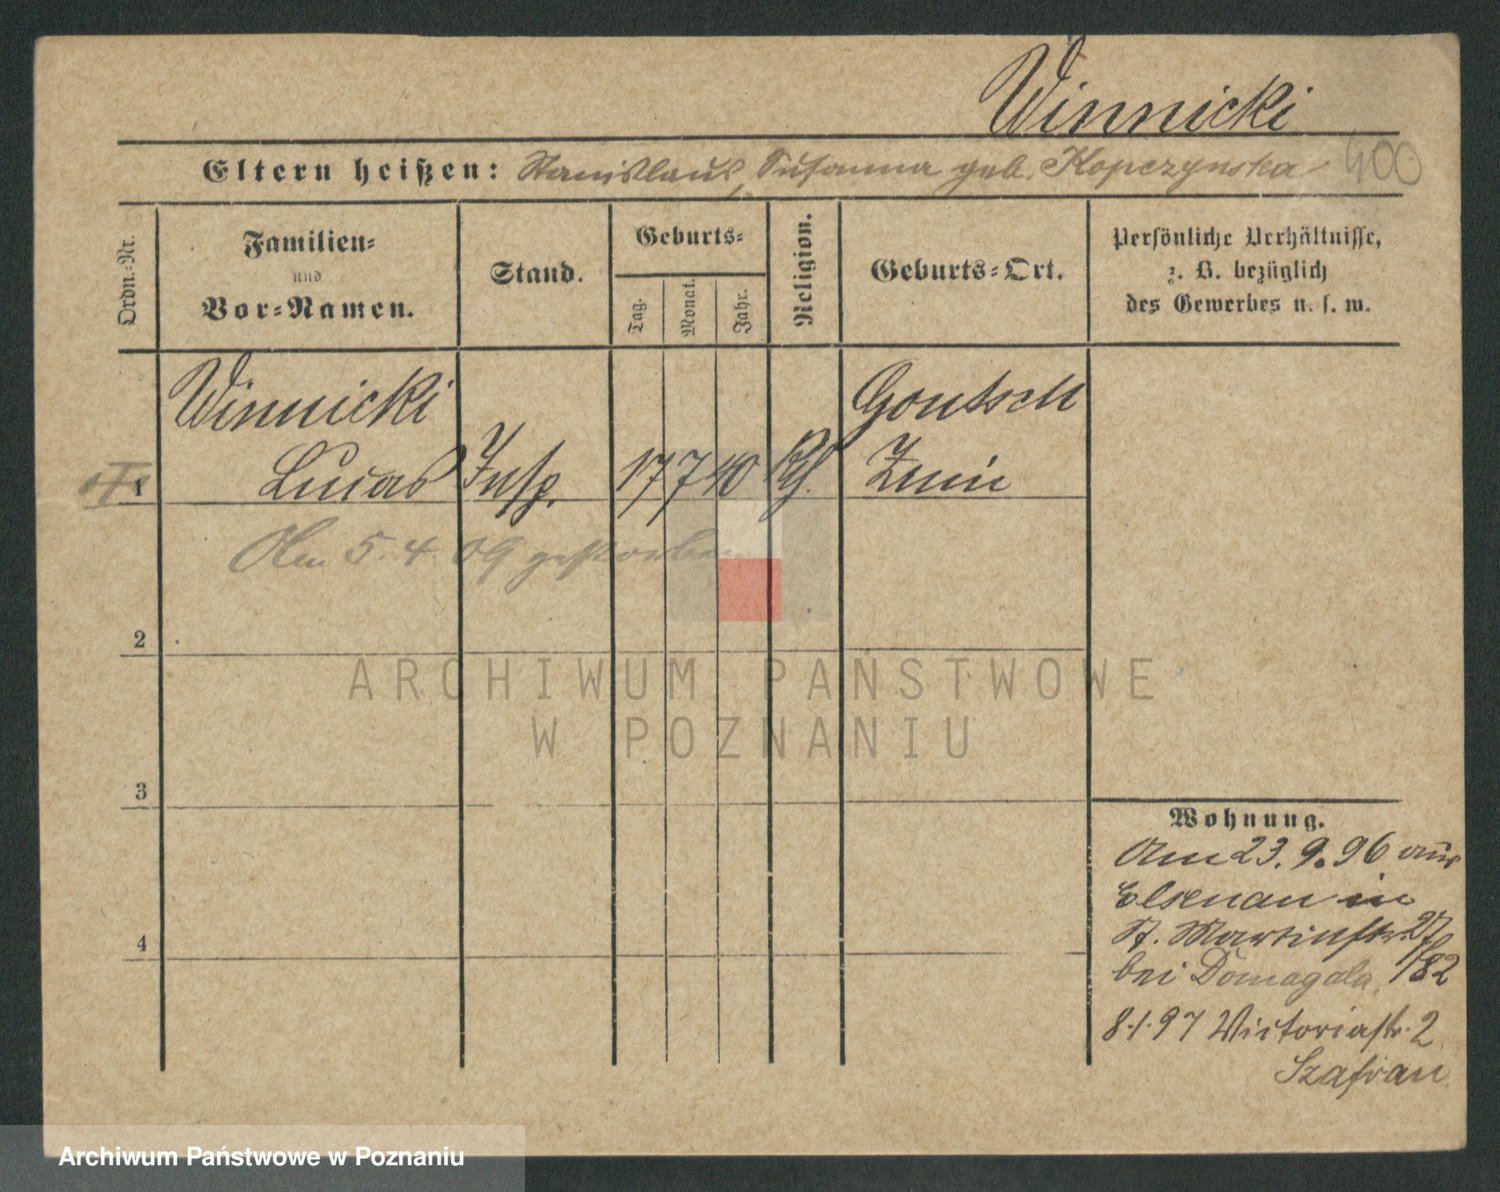 Winnicki
400
Eltern heißen: Stanislaus, Susanna geb. Kopczynska
Ordn.-Nr.
Familien-
und
Vor-Namen.
Stand.
Geburts-
Tag.
Monat.
Jahr.
Religion.
Geburts-Ort.
Persönliche Verhältnisse,
z. B. bezüglich
des Gewerbes u. s. w.
Winnicki
Goutsch
1
Lucas
Insp.
17
7
40
Kth.
Znin
Am 5. 4. 09 gestorben
2
3
4
Wohnung.
Am 23. 9. 96 aus
Elsenau in
St. Martinstr. 27
bei Domagala, /82
8.1.97 Victoriastr. 2
Szafran
ARCHIWUM PAŃSTWOWE
W POZNANIU
Archiwum Państwowe w Poznaniu